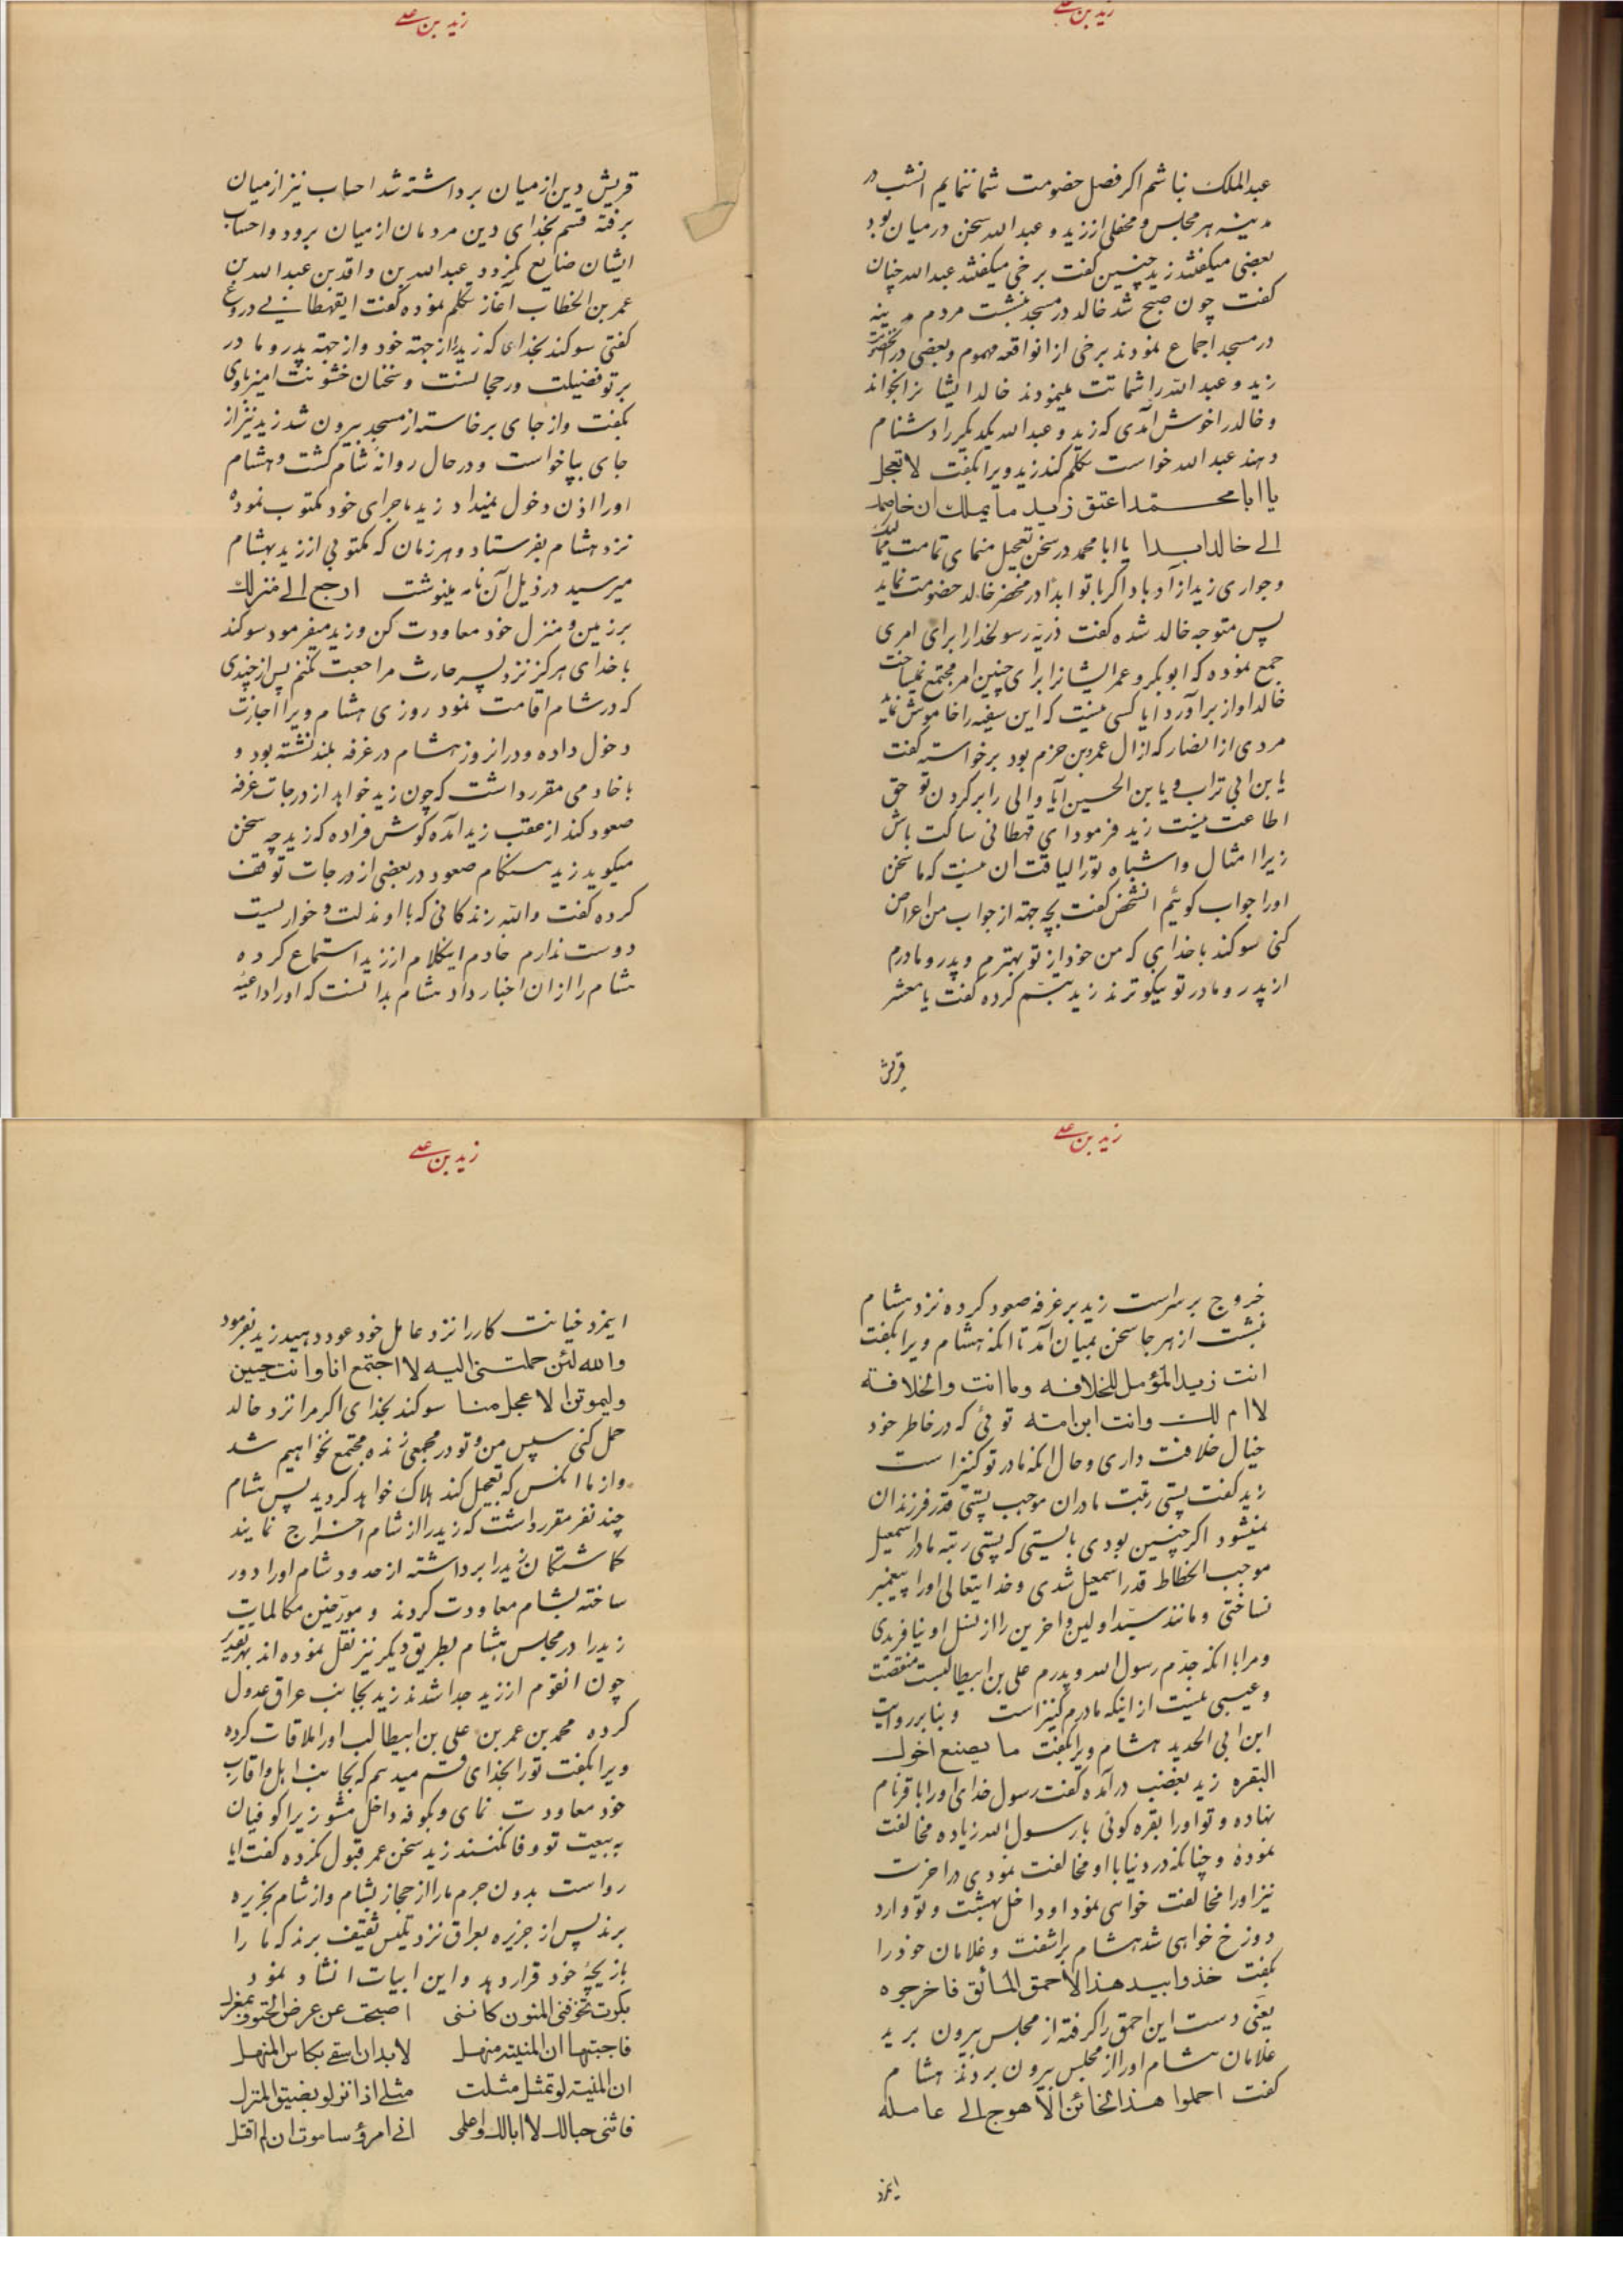 زید بن علی
عبدالملک نباشم اکر فصل خصومت شما ننمایم انشب در
مدینه هر مجلس و محفلی از زید و عبدالله سخن در میان بود
بعضی میکفتند زید چنین کفت برخی میکفتند عبدالله چنان
کفت چون صبح شد خالد در مسجد بنشست مردم مدینه
در مسجد اجماع نمودند برخی از انواقعه مهموم و بعضی در انحضرت
زید و عبدالله را شماتت مینمودند خالد ایشانرا بخواند
و خالد را خوش آمدی که زید و عبدالله یکدیکر را دشنام
دهند عبدالله خواست تکلم کند زید ویرا بکفت لا تعجل
یا ابا محمد اعتق زید ما یملک ان خاصمک
الی خالد ابدا یا ابا محمد در سخن تعجیل منمای تمامت ممالیک
و جواری زید ازاد باد اکر با تو ابدا در محضر خالد خصومت نماید
پس متوجه خالد شده کفت ذریه رسولخدا را برای امری
جمع نموده که ابوبکر و عمر ایشانرا برای چنین امر مجتمع نمیساخت
خالد اواز برآورد ایا کسی نیست که این سفیه را خاموش نماید
مردی از انصار که از ال عمرو بن حزم بود برخواسته کفت
یابن ابی تراب و یابن الحسین آیا والی را بر کردن تو حق
اطاعت نیست زید فرمود ای قهطانی ساکت باش
زیرا امثال و اشباه تو را لیاقت ان نیست که ما سخن
اورا جواب کوئیم انشخص کفت بچه جهة از جواب من اعراض
کنی سوکند با خدای که من خود از تو بهترم و پدر و مادرم
از پدر و مادر تو نیکوترند زید تبسم کرده کفت یا معشر
قریش
زید بن علی
قریش دین از میان برداشته شد احساب نیز از میان
برفته قسم بخدای دین مردمان از میان برود و احساب
ایشان ضایع نکردد عبدالله بن واقد بن عبدالله بن
عمر بن الخطاب آغاز تکلم نموده کفت ایقهطانی دروغ
کفتی سوکند بخدای که زید را از جهة خود و از جهة پدر و مادر
بر تو فضیلت و رجحانست و سخنان خشونت امیز باوی
بکفت و از جای برخاسته از مسجد بیرون شد زید نیز از
جای بپاخواست و در حال روانه شام کشت و هشام
اورا اذن دخول نمیداد زید ماجرای خود مکتوب نموده
نزد هشام بفرستاد و هر زمان که مکتوبی از زید بهشام
میرسید در ذیل آن نامه مینوشت ارجع الی منزلک
بر زمین و منزل خود معاودت کن و زید میفرمود سوکند
با خدای هرکز نزد پسر حارث مراجعت نکنم پس از چندی
که در شام اقامت نمود روزی هشام ویرا اجازت
دخول داده و در انروز هشام در غرفه بلند نشسته بود و
با خادمی مقرر داشت که چون زید خواهد از درجات غرفه
صعود کند از عقب زید آمده کوش فراده که زید چه سخن
میکوید زید هنکام صعود در بعضی از درجات توقف
کرده کفت والله زندکانی که با او مذلت و خواریست
دوست ندارم خادم اینکلام از زید استماع کرده
هشام را از ان اخبار داد هشام بدانست که اورا داعیه
زید بن علی
خروج بر سر است زید بر غرفه صعود کرده نزد هشام
نشست از هر جا سخن بمیان آمد تا انکه هشام ویرا بکفت
انت زید المؤمل للخلافه وما انت والخلافة
لا ام لک وانت ابن امته توئی که در خاطر خود
خیال خلافت داری و حال انکه مادر تو کنیز است
زید کفت پستی رتبت مادران موجب پستی قدر فرزندان
نمیشود اکر چنین بودی بایستی که پستی رتبه مادر اسمعیل
موجب انحطاط قدر اسمعیل شدی و خدایتعالی اورا پیغمبر
نساختی و مانند سید اولین و اخرین را از نسل او نیافریدی
و مرا با انکه جدم رسول الله و پدرم علی بن ابیطالبست منقصت
و عیبی نیست از اینکه مادرم کنیز است و بنابر روایت
ابن ابی الحدید هشام ویرا بکفت ما یصنع اخوک
البقره زید بغضب درآمده کفت رسول خدای اورا باقر نام
نهاده و تو اورا بقره کوئی با رسول الله زیاده مخالفت
نمودهٔ و چنانکه در دنیا با او مخالفت نمودی در اخرت
نیز اورا مخالفت خواهی نمود او داخل بهشت و تو وارد
دوزخ خواهی شد هشام براشفت و غلامان خود را
بکفت خذوا بید هذا الاحمق المائق فاخرجوه
یعنی دست این احمق را کرفته از مجلس بیرون برید
غلامان هشام اورا از مجلس بیرون بردند هشام
کفت احملوا هذا الخائن الاهوج الی عامله
اینمرد
زید بن علی
اینمرد خیانت کار را نزد عامل خود عود دهید زید بفرمود
والله لئن حملتنی الیه لا اجتمع انا وانت حیین
ولیموتن الاعجل منا سوکند بخدای اکر مرا نزد خالد
حمل کنی سپس من و تو در مجمعی زنده مجتمع نخواهیم شد
و از ما انکس که تعجیل کند هلاک خواهد کردید پس هشام
چند نفر مقرر داشت که زید را از شام اخراج نمایند
کماشتکان زید را برداشته از حدود شام اورا دور
ساخته بشام معاودت کردند و مورخین مکالمات
زید را در مجلس هشام بطریق دیکر نیز نقل نموده اند بهر تقدیر
چون انقوم از زید جدا شدند زید بجانب عراق عدول
کرده محمد بن عمر بن علی بن ابیطالب اورا ملاقات کرده
ویرا بکفت تو را بخدای قسم میدهم که بجانب اهل و اقارب
خود معاودت نمای و بکوفه داخل مشو زیرا کوفیان
به بیعت تو وفا نکنند زید سخن عمر قبول نکرده کفت ایا
رواست بدون جرم ما را از حجاز بشام و از شام بجزیره
برند پس از جزیره بعراق نزد تیس ثقیف برند که ما را
بازیچهٔ خود قرار دهد و این ابیات انشاد نمود
بکرت تخوفنی المنون کاننی اصبحت عن عرض الحتوف بمعزل
فاجبتها ان المنیته منهل لابد ان اسقی بکاس المنهل
ان المنیته لو تمثل مثلت مثلی اذا نزلو بضیق المنزل
فاثنی حبالک لا ابالک واعلمی انی امرؤ ساموت ان لم اقتل